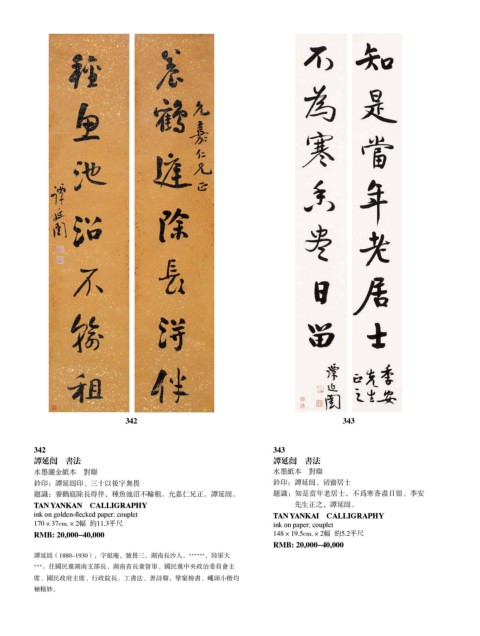 養鶴庭除長得伴
允嘉仁兄正
種魚池沼不輸租
譚延闓
342
知是當年老居士
季安
先生
正之
不為寒香盡日留
譚延闓
343
342
譚延闓　書法
水墨灑金紙本　對聯
鈐印：譚延闓印、三十以後字無畏
題識：養鶴庭除長得伴，種魚池沼不輸租。允嘉仁兄正。譚延闓。
TAN YANKAN　CALLIGRAPHY
ink on golden-flecked paper; couplet
170 × 37cm. × 2幅　約11.3平尺
RMB: 20,000–40,000
譚延闓（1880–1930），字組庵，號畏三。湖南長沙人。******，陸軍大
***。任國民黨湖南支部長、湖南省長兼督軍、國民黨中央政治委員會主
席、國民政府主席、行政院長。工書法、善詩聯，擘窠榜書、蠅頭小楷均
極精妙。
343
譚延闓　書法
水墨紙本　對聯
鈐印：譚延闓、訒齋居士
題識：知是當年老居士，不爲寒香盡日留。季安
先生正之，譚延闓。
TAN YANKAI　CALLIGRAPHY
ink on paper; couplet
148 × 19.5cm. × 2幅　約5.2平尺
RMB: 20,000–40,000